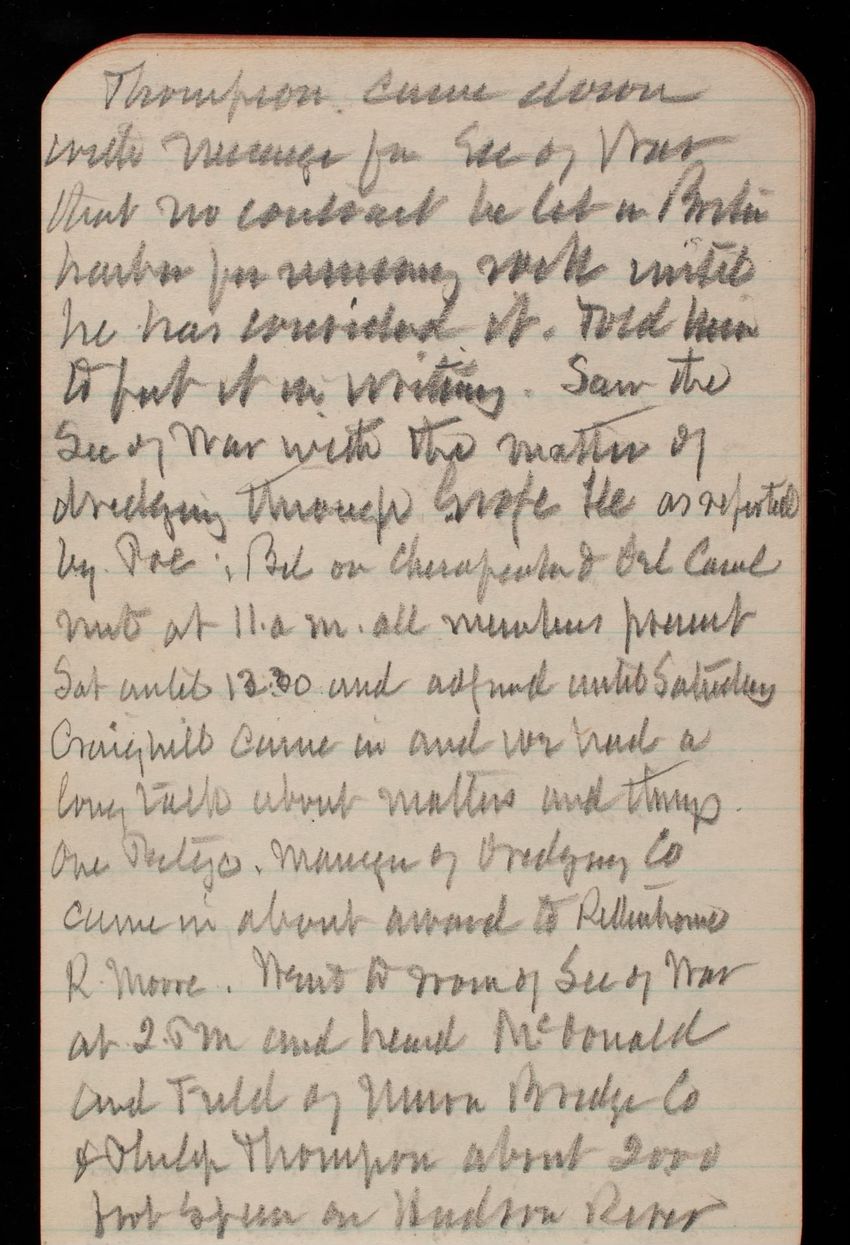 Thompson. came down
with message fm Sec of War
that no contract be let in Boston
harbor for removing rock until
he has considered it. Told him
to put it in writing. Saw the
Sec of War with the matter of
dredging through Grosse Ile as reported
by Poe ; Bd on Chesapeake & Del Canal
met at 11. a m. all members present
Sat until 12.30 and adjnd until Saturday
Craighill came in and we had a
long talk about matters and things.
One Manager of Dredging Co
came in about award to Rittenhouse
R. Moore. Went to room of Sec of War
at 2. P m and heard McDonald
and Field of Union Bridge Co
& Philip Thompson about 2000
foot span on Hudson River